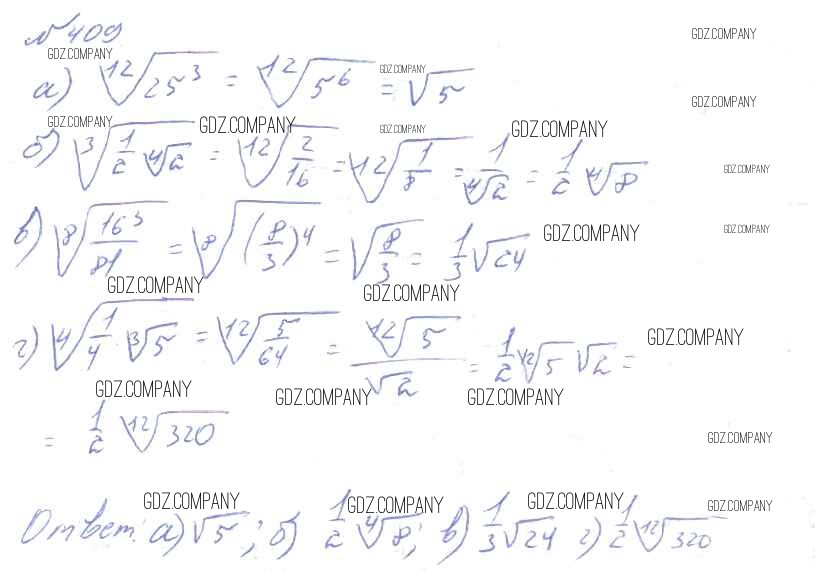 №409
GDZ.COMPANY
GDZ.COMPANY
а) ¹²√25³ = ¹²√5⁶ = √5
GDZ.COMPANY
GDZ.COMPANY
GDZ.COMPANY GDZ.COMPANY GDZ.COMPANY GDZ.COMPANY
б) ³√(1/2 ⁴√2) = ¹²√(2/16) = ¹²√(1/8) = 1/⁴√2 = 1/2 ⁴√8
GDZ.COMPANY
в) ⁸√(16³/81) = ⁸√(8/3)⁴ = √(8/3) = 1/3 √24
GDZ.COMPANY
GDZ.COMPANY
GDZ.COMPANY GDZ.COMPANY
г) ⁴√(1/4 ³√5) = ¹²√(5/64) = ¹²√5/√2 = 1/2 ¹²√5 √2 =
GDZ.COMPANY
GDZ.COMPANY GDZ.COMPANY GDZ.COMPANY
= 1/2 ¹²√320
GDZ.COMPANY
GDZ.COMPANY GDZ.COMPANY GDZ.COMPANY GDZ.COMPANY
Ответ: а) √5; б) 1/2 ⁴√8; в) 1/3 √24 г) 1/2 ¹²√320